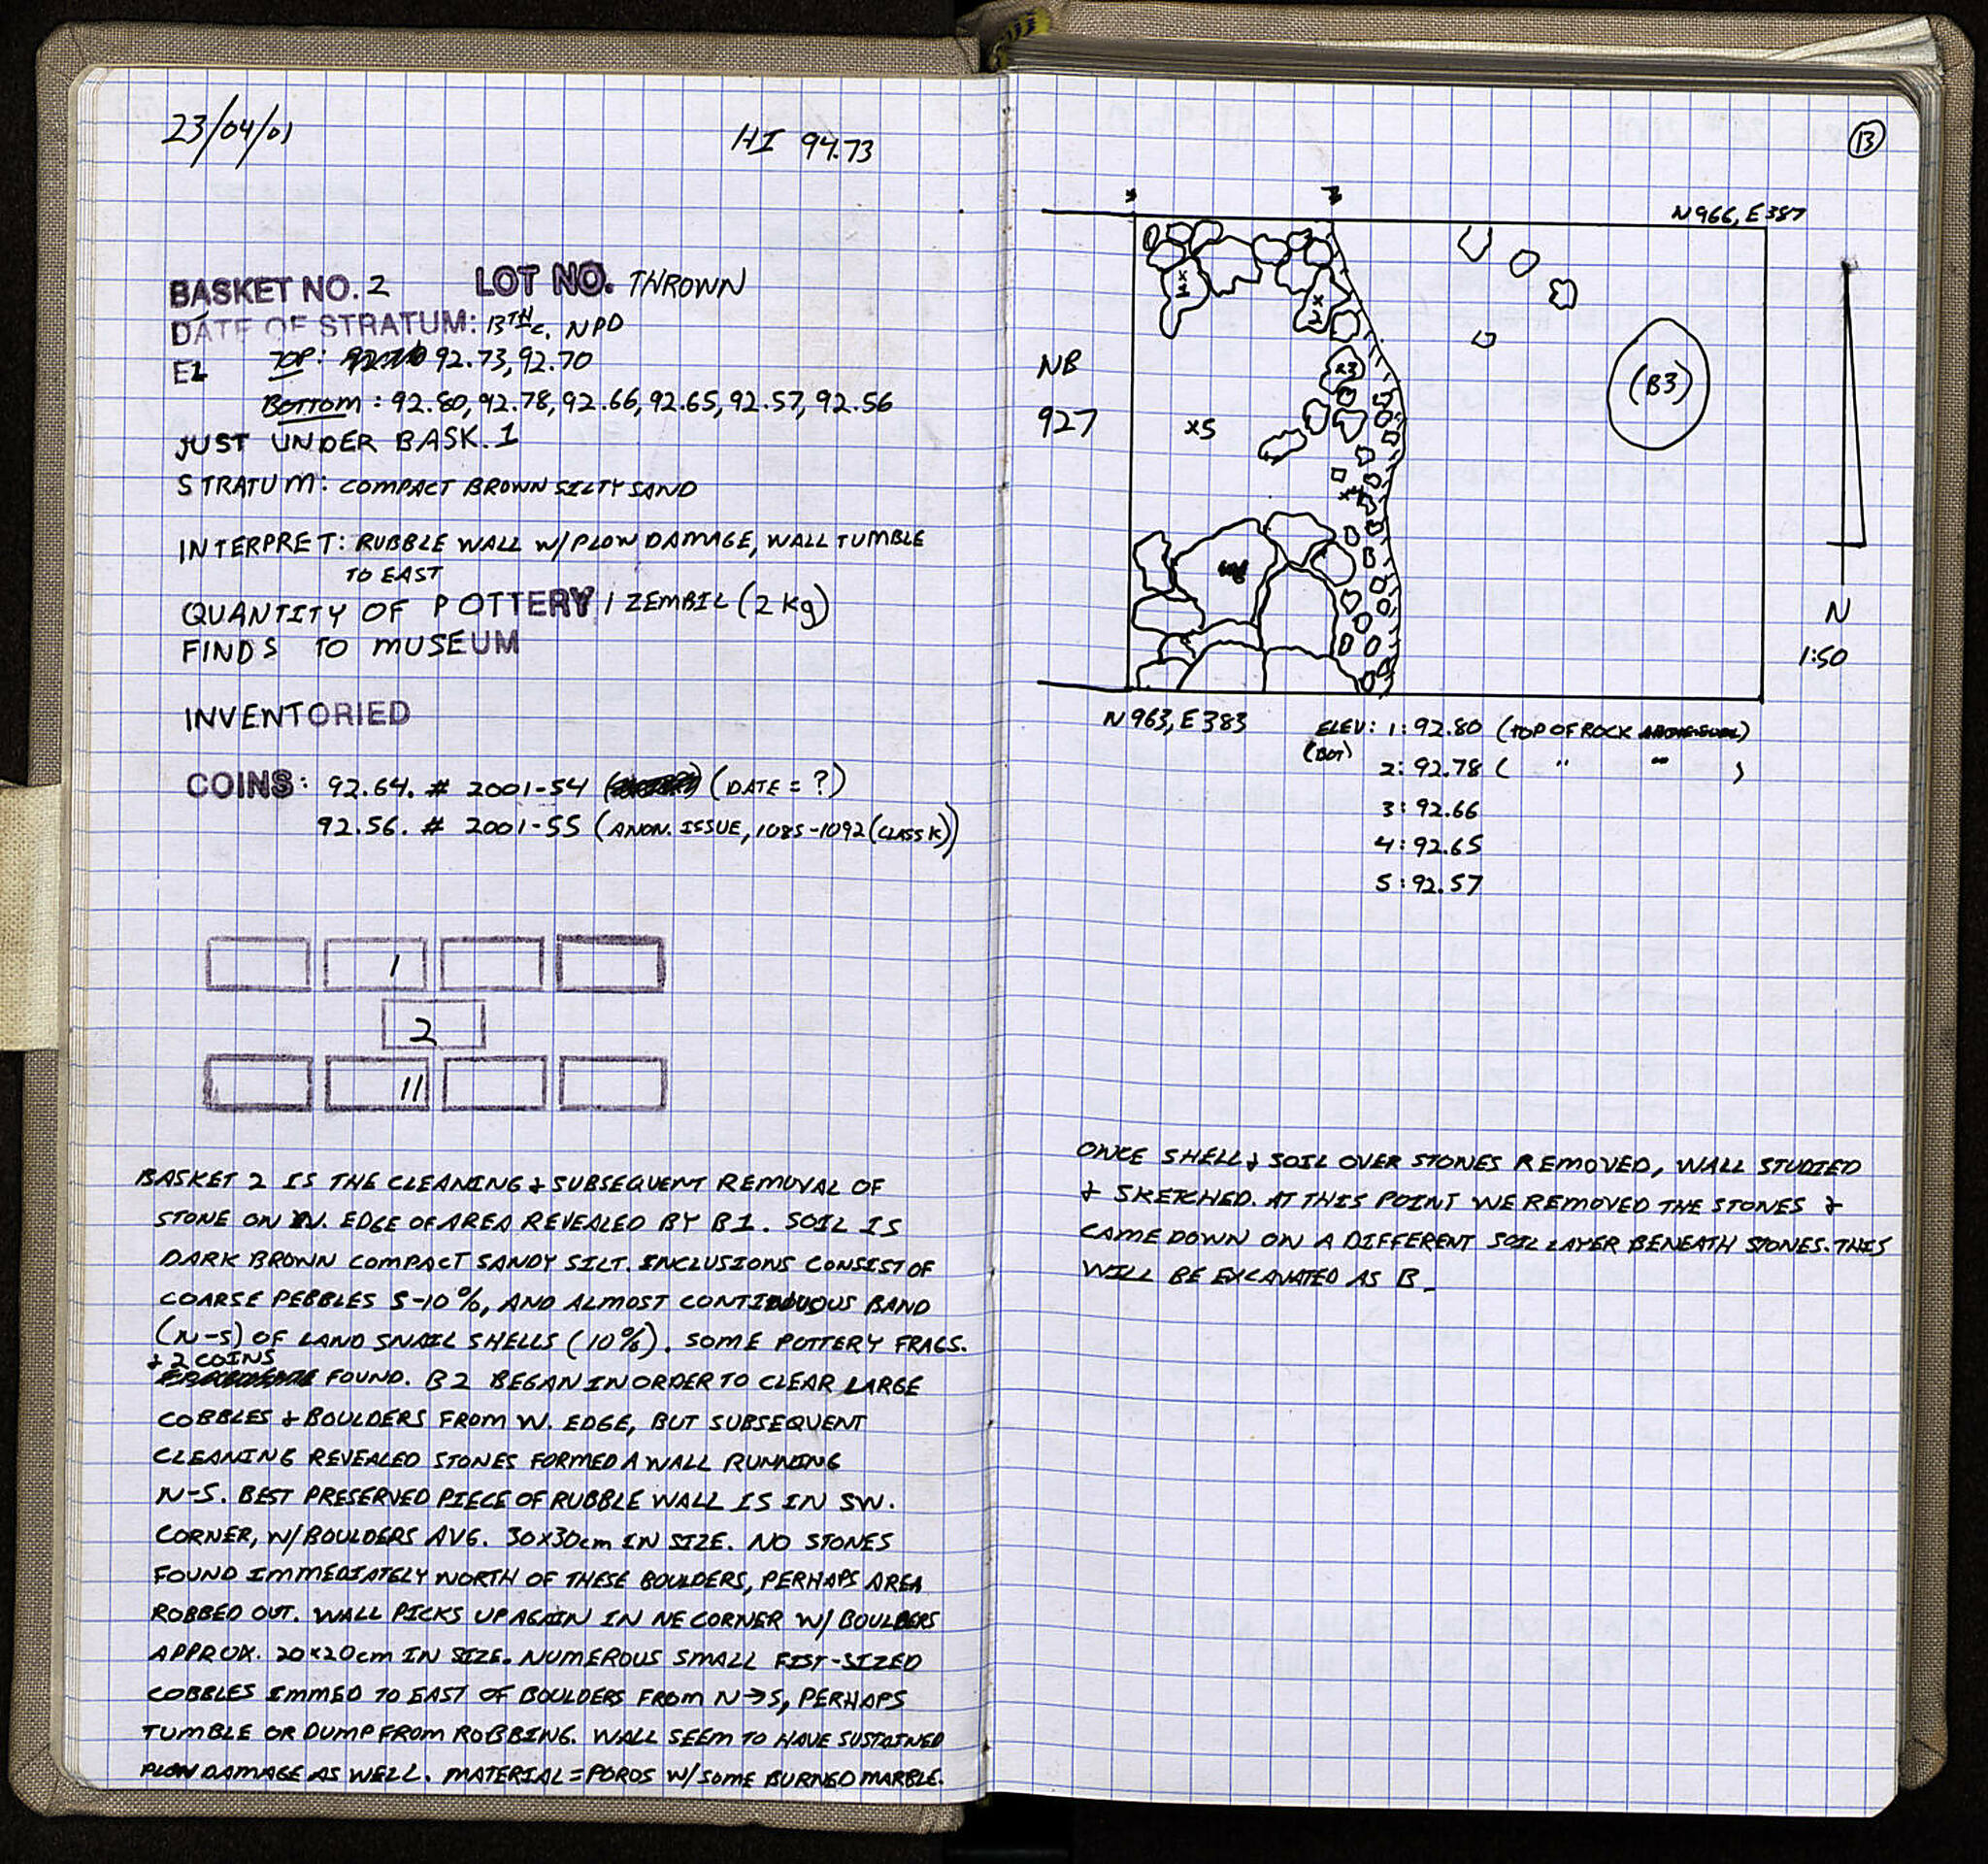 23/04/01
HI 94.73
BASKET NO. 2 LOT NO. THROWN
DATE OF STRATUM: 13TH C. NPD
EL TOP: 92.73, 92.70
BOTTOM: 92.80, 92.78, 92.66, 92.65, 92.57, 92.56
JUST UNDER BASK. 1
STRATUM: COMPACT BROWN SILTY SAND
INTERPRET: RUBBLE WALL W/ PLOW DAMAGE, WALL TUMBLE
TO EAST
QUANTITY OF POTTERY 1 ZEMBIL (2 Kg)
FINDS TO MUSEUM
INVENTORIED
COINS: 92.64. # 2001-54 (DATE = ?)
92.56. # 2001-55 (ANON. ISSUE, 1085-1092 (CLASS K))
1
2
11
BASKET 2 IS THE CLEANING & SUBSEQUENT REMOVAL OF
STONE ON W. EDGE OF AREA REVEALED BY B1. SOIL IS
DARK BROWN COMPACT SANDY SILT. INCLUSIONS CONSIST OF
COARSE PEBBLES 5-10%, AND ALMOST CONTINUOUS BAND
(N-S) OF LAND SNAIL SHELLS (10%). SOME POTTERY FRAGS.
& 2 COINS
FOUND. B2 BEGAN IN ORDER TO CLEAR LARGE
COBBLES & BOULDERS FROM W. EDGE, BUT SUBSEQUENT
CLEANING REVEALED STONES FORMED A WALL RUNNING
N-S. BEST PRESERVED PIECE OF RUBBLE WALL IS IN SW.
CORNER, W/ BOULDERS AVG. 30X30cm IN SIZE. NO STONES
FOUND IMMEDIATELY NORTH OF THESE BOULDERS, PERHAPS AREA
ROBBED OUT. WALL PICKS UP AGAIN IN NE CORNER W/ BOULDERS
APPROX. 20x20cm IN SIZE. NUMEROUS SMALL FIST-SIZED
COBBLES IMMED TO EAST OF BOULDERS FROM N→S, PERHAPS
TUMBLE OR DUMP FROM ROBBING. WALL SEEM TO HAVE SUSTAINED
PLOW DAMAGE AS WELL. MATERIAL = POROS W/ SOME BURNED MARBLE.
13
N 966, E 387
x1
x2
x3
(B3)
NB
927
x5
x4
N
1:50
N 963, E 383
ELEV: 1: 92.80 (TOP OF ROCK)
(BOT)
2: 92.78 ( " " )
3: 92.66
4: 92.65
5: 92.57
ONCE SHELL & SOIL OVER STONES REMOVED, WALL STUDIED
& SKETCHED. AT THIS POINT WE REMOVED THE STONES &
CAME DOWN ON A DIFFERENT SOIL LAYER BENEATH STONES. THIS
WILL BE EXCAVATED AS B_